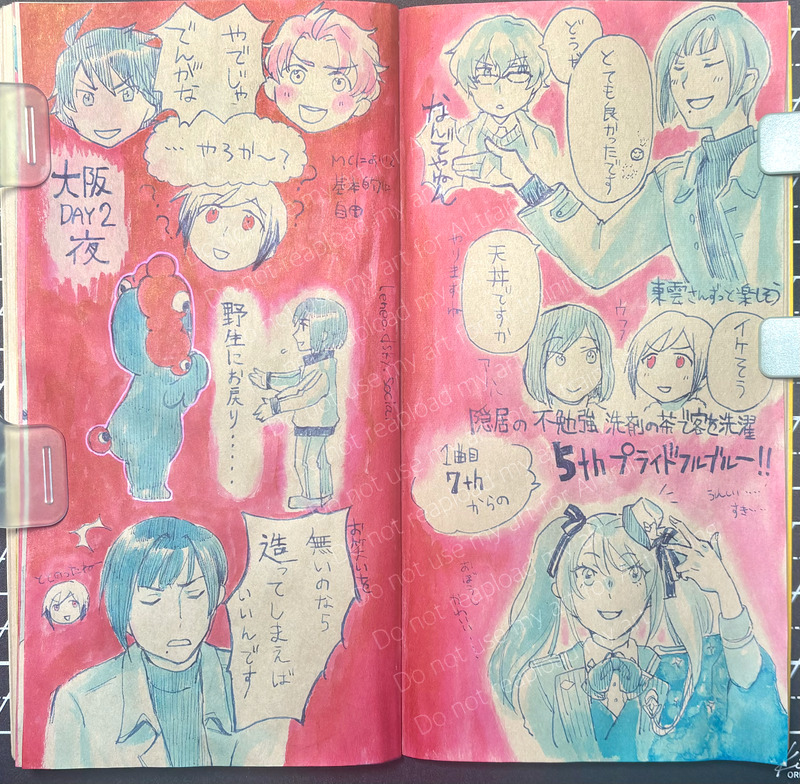 やでじゃ
でんがな
… やろか〜?
MCにおいて
基本的に
自由
大阪
DAY2
夜
野生にお戻り……
お笑いを
無いのなら
造ってしまえば
いいんです
どうや
とても良かったです
なんでやねん
東雲さんずっと楽しそう
やりますね
天丼ですか
ウフフ
アハハ
イケそう
隠居の 不勉強 洗剤の茶で客を洗濯
5th プライドフルブルー!!
1曲目
7th
からの
うんいい……
すき…
おぼうし
かわいい…
Do not reapload my art for AI training
Do not use my art for AI training